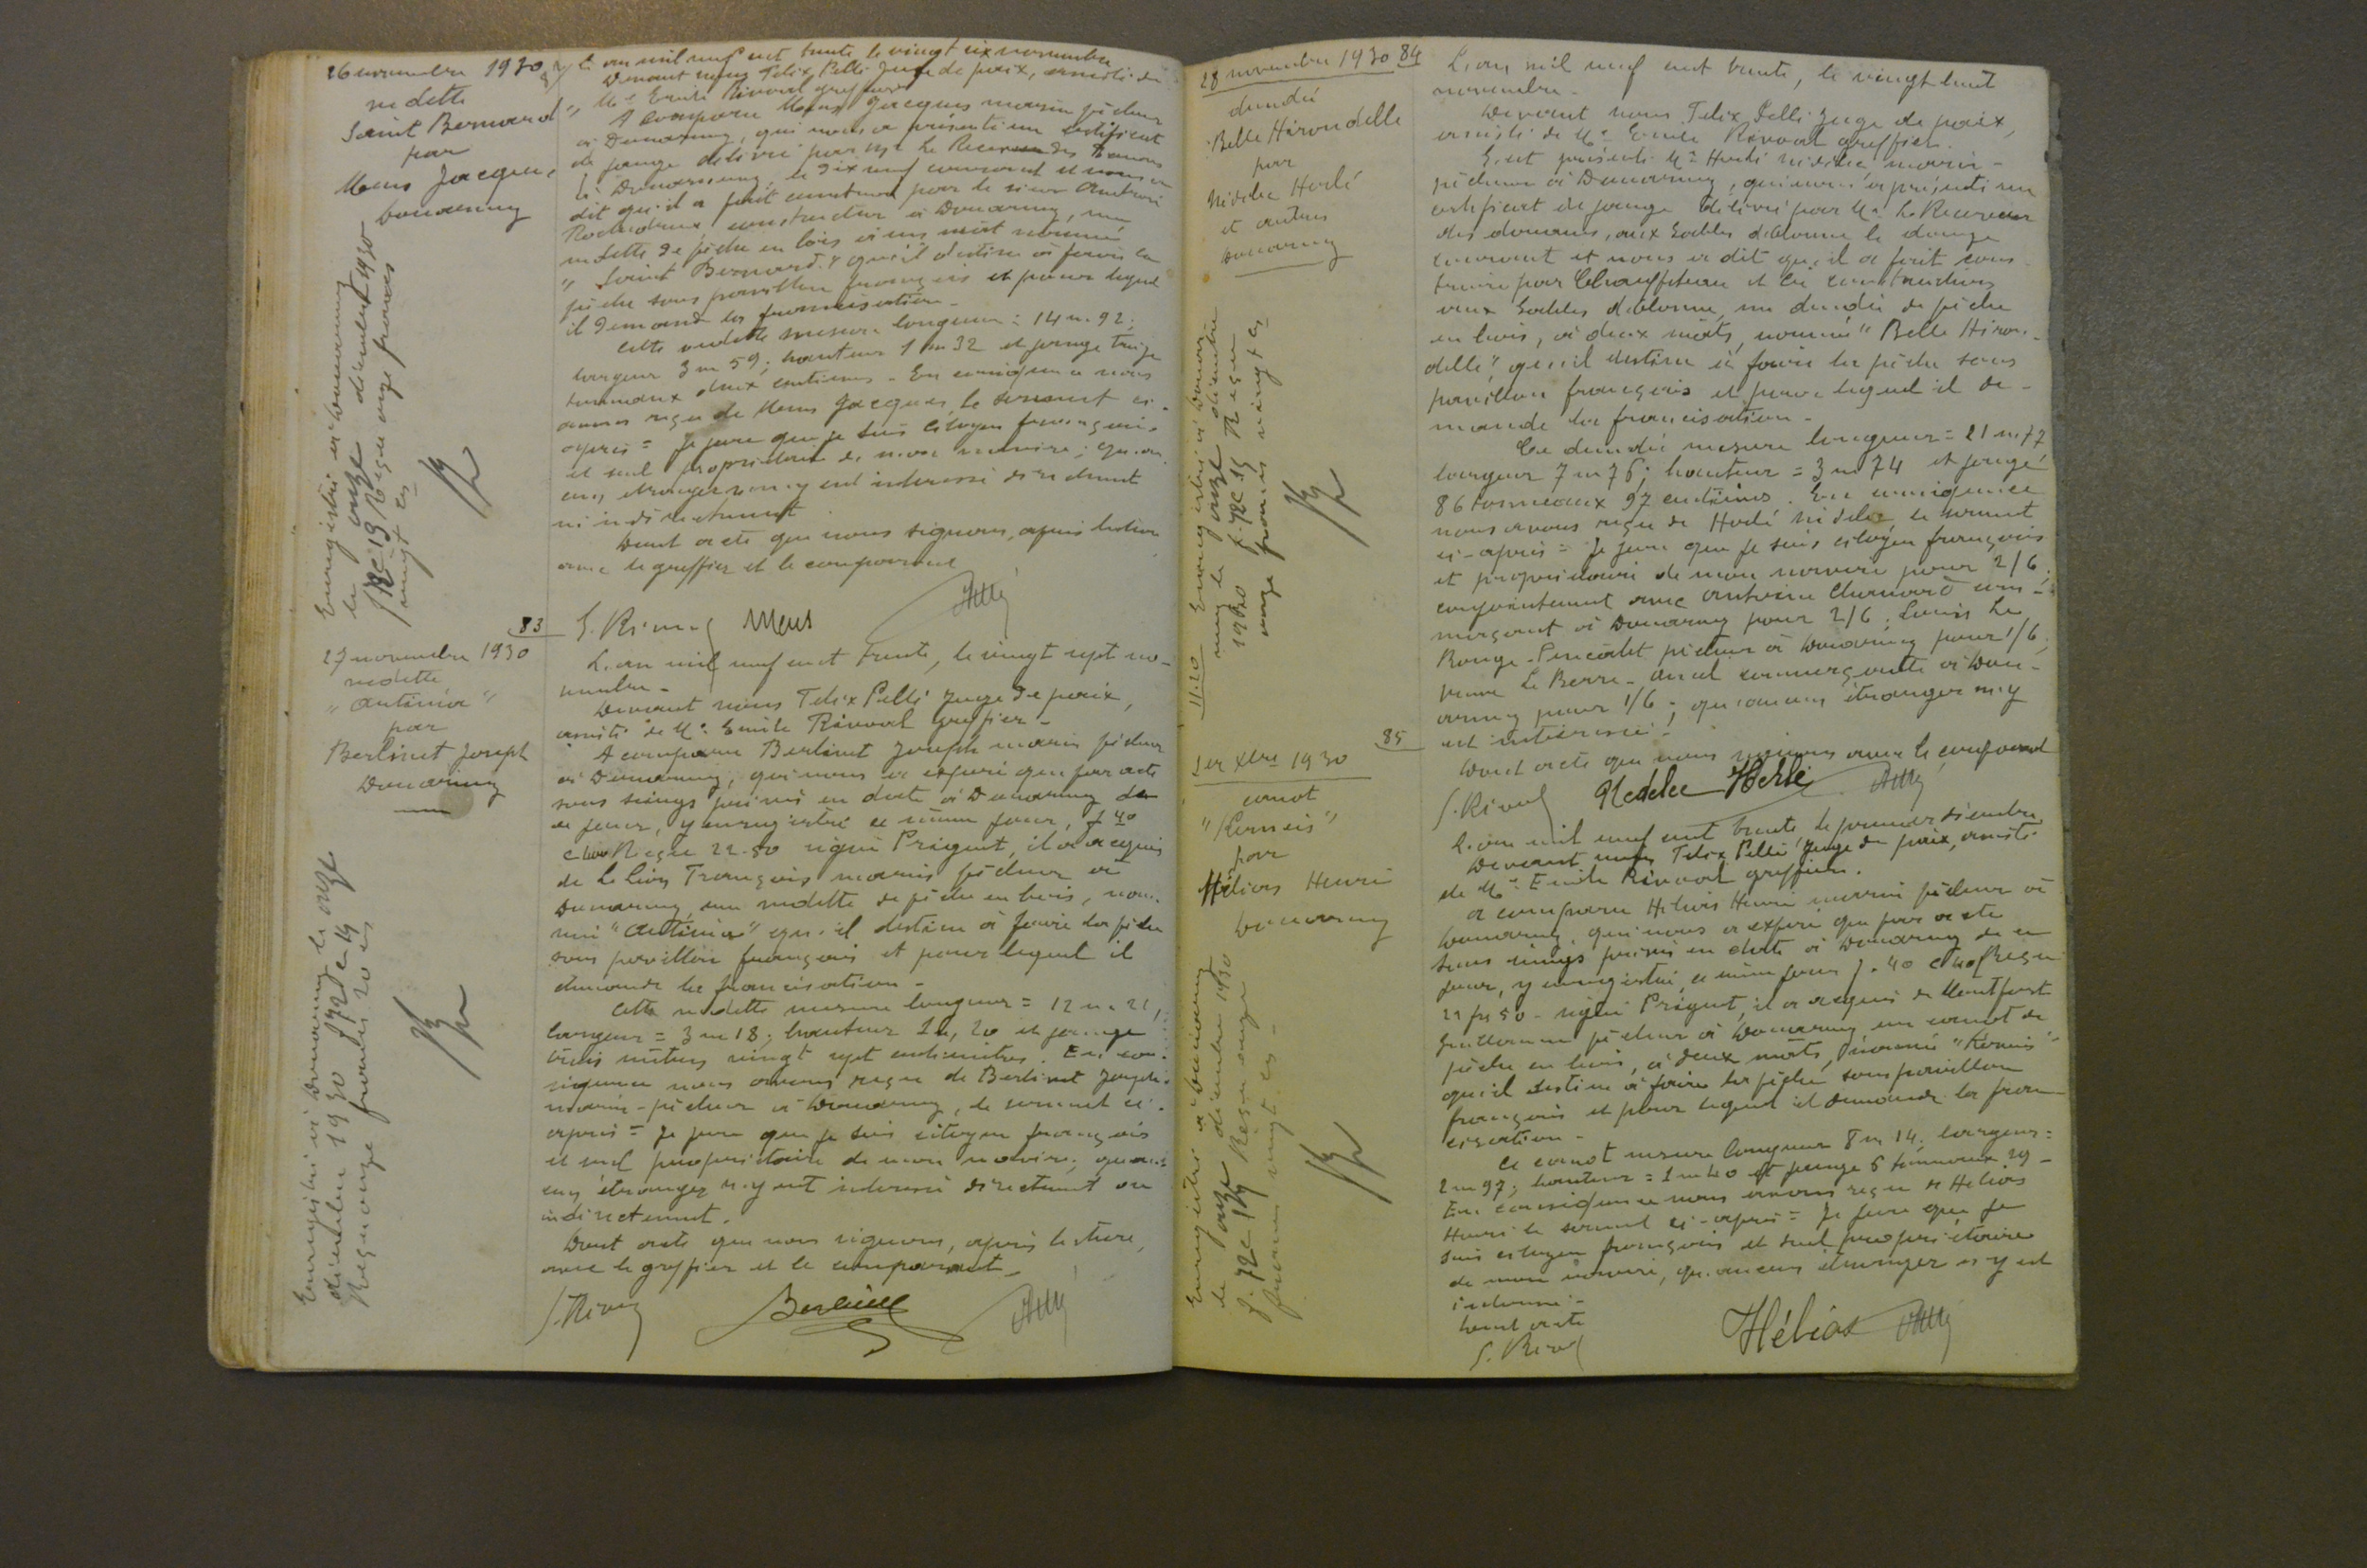 26 novembre 1930
vedette
Saint Bernard
par
Mens Jacques
Douarnenez
Enregistré à Douarnenez
le onze décembre 1930
f 72 c 13 Reçu onze francs
vingt ces
L'an mil neuf cent trente le vingt six novembre
Devant nous Felix Pelli Juge de paix, assisté de
Me Emile Rivoal greffier
A comparu Mens Jacques marin pêcheur
à Douarnenez, qui nous a présenté un certificat
de jauge délivré par Mr le Receveur des Douanes
à Douarnenez, le dix neuf courant et nous a
dit qu'il a fait construire par le sieur
constructeur à Douarnenez, une
vedette de pêche en bois à un mât nommé
"Saint Bernard" qu'il destine à faire la
pêche sous pavillon français et pour lequel
il demande la francisation -
Cette vedette mesure longueur = 14 m. 92;
largeur 3 m 59; hauteur 1 m 32 et jauge treize
tonneaux deux centièmes - En conséquence nous
avons reçu de Mens Jacques le serment ci-
après = Je jure que je suis citoyen français
et seul propriétaire de mon navire; qu'au-
cun étranger n'y est intéressé directement
ni indirectement
Dont acte que nous signons, après lecture
avec le greffier et le comparant
E. Rivoal Mens
83
27 novembre 1930
vedette
"Antinéa"
par
Berlinet Joseph
Douarnenez
Enregistré à Douarnenez le onze
décembre 1930 f 72 c 14
Reçu onze francs 20 ces
L'an mil neuf cent trente, le vingt sept no-
vembre -
Devant nous Felix Pelli Juge de paix,
assisté de Me Emile Rivoal greffier -
A comparu Berlinet Joseph marin pêcheur
à Douarnenez, qui nous a exposé que par acte
sous seings privés en date à Douarnenez de
ce jour, y enregistré ce même jour, f 40
c Reçu 22.50 signé Prigent, il a acquis
de Le Lion François marin pêcheur à
Douarnenez, une vedette de pêche en bois, nom-
mé "Antinéa" qu'il destine à faire la pêche
sous pavillon français et pour lequel il
demande la francisation -
Cette vedette mesure longueur = 12 m. 21,
largeur = 3 m 18; hauteur 1 m, 20 et jauge
mètres vingt sept centimètres. En con-
séquence nous avons reçu de Berlinet Joseph
marin-pêcheur à Douarnenez, le serment ci-
après = Je jure que je suis citoyen français
et seul propriétaire de mon navire; qu'au-
cun étranger n'y est intéressé directement ou
indirectement.
Dont acte que nous signons, après lecture,
avec le greffier et le comparant -
E. Rivoal Berlinet
28 novembre 1930 84
dundée
Belle Hirondelle
par
Nédélec Herlé
et autres
Douarnenez
11.20 Enregistré à Douar-
nenez le onze décembre
1930 f. 72 c 15 Reçu
onze francs vingt ces
L'an mil neuf cent trente, le vingt huit
novembre -
Devant nous Felix Pelli Juge de paix,
assisté de Me Emile Rivoal greffier.
S'est présenté Mr Herlé Nédélec, marin-
pêcheur à Douarnenez, qui nous a présenté un
certificat de jauge délivré par Mr le Receveur
des douanes, aux Sables d'Olonne le douze
courant et nous a dit qu'il a fait cons-
truire par Chauffeteau et Cie constructeurs
aux Sables d'Olonne, un dundée de pêche
en bois, à deux mâts, nommé "Belle Hiron-
delle" qu'il destine à faire la pêche sous
pavillon français et pour lequel il de-
mande la francisation -
Ce dundée mesure longueur = 21 m. 77
largeur 7 m 76; hauteur = 3 m 74 et jauge
86 tonneaux 97 centièmes. En conséquence
nous avons reçu de Herlé Nédélec le serment
ci-après = Je jure que je suis citoyen français
et propriétaire de mon navire pour 2/6
conjointement avec Antoine com-
merçant à Douarnenez pour 2/6; Louis Le
Berre-Pencalet pêcheur à Douarnenez pour 1/6;
veuve Le Berre - commerçante à Dou-
arnenez pour 1/6; qu'aucun étranger n'y
est intéressé -
Dont acte que nous signons avec le comparant
E. Rivoal Nedelec Herlé
85
1er Xbre 1930
canot
"Kerneis"
par
Hélias Henri
Douarnenez
Enregistré à Douarnenez
le onze décembre 1930
f. 72 c 14 Reçu onze
francs vingt ces -
L'an mil neuf cent trente le premier décembre
Devant nous Felix Pelli Juge de paix, assisté
de Me Emile Rivoal greffier.
A comparu Hélias Henri marin pêcheur à
Douarnenez, qui nous a exposé que par acte
sous seings privés en date à Douarnenez de ce
jour, y enregistré, ce même jour f. 40 c Reçu
22 frs 50 - signé Prigent, il a acquis de Montfort
Guillaume pêcheur à Douarnenez un canot de
pêche en bois, à deux mâts, dénommé "Kerneis"
qu'il destine à faire la pêche sous pavillon
français et pour lequel il demande la fran-
cisation -
Ce canot mesure longueur 8 m 14; largeur =
2 m 97; hauteur = 1 m 40 et jauge 6 tonneaux 29 -
En conséquence nous avons reçu de Hélias
Henri le serment ci-après = Je jure que je
suis citoyen français et seul propriétaire
de mon navire, qu'aucun étranger n'y est
intéressé -
Dont acte
E. Rivoal Hélias